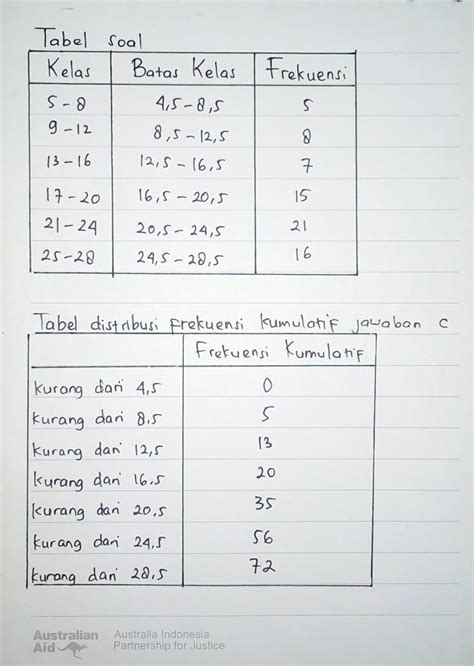 Tabel soal
Kelas Batas Kelas Frekuensi
5 - 8 4,5 - 8,5 5
9 - 12 8,5 - 12,5 8
13 - 16 12,5 - 16,5 7
17 - 20 16,5 - 20,5 15
21 - 24 20,5 - 24,5 21
25 - 28 24,5 - 28,5 16
Tabel distribusi frekuensi kumulatif jawaban c
Frekuensi Kumulatif
kurang dari 4,5 0
kurang dari 8,5 5
kurang dari 12,5 13
kurang dari 16,5 20
kurang dari 20,5 35
kurang dari 24,5 56
kurang dari 28,5 72
Australian Aid Australia Indonesia Partnership for Justice